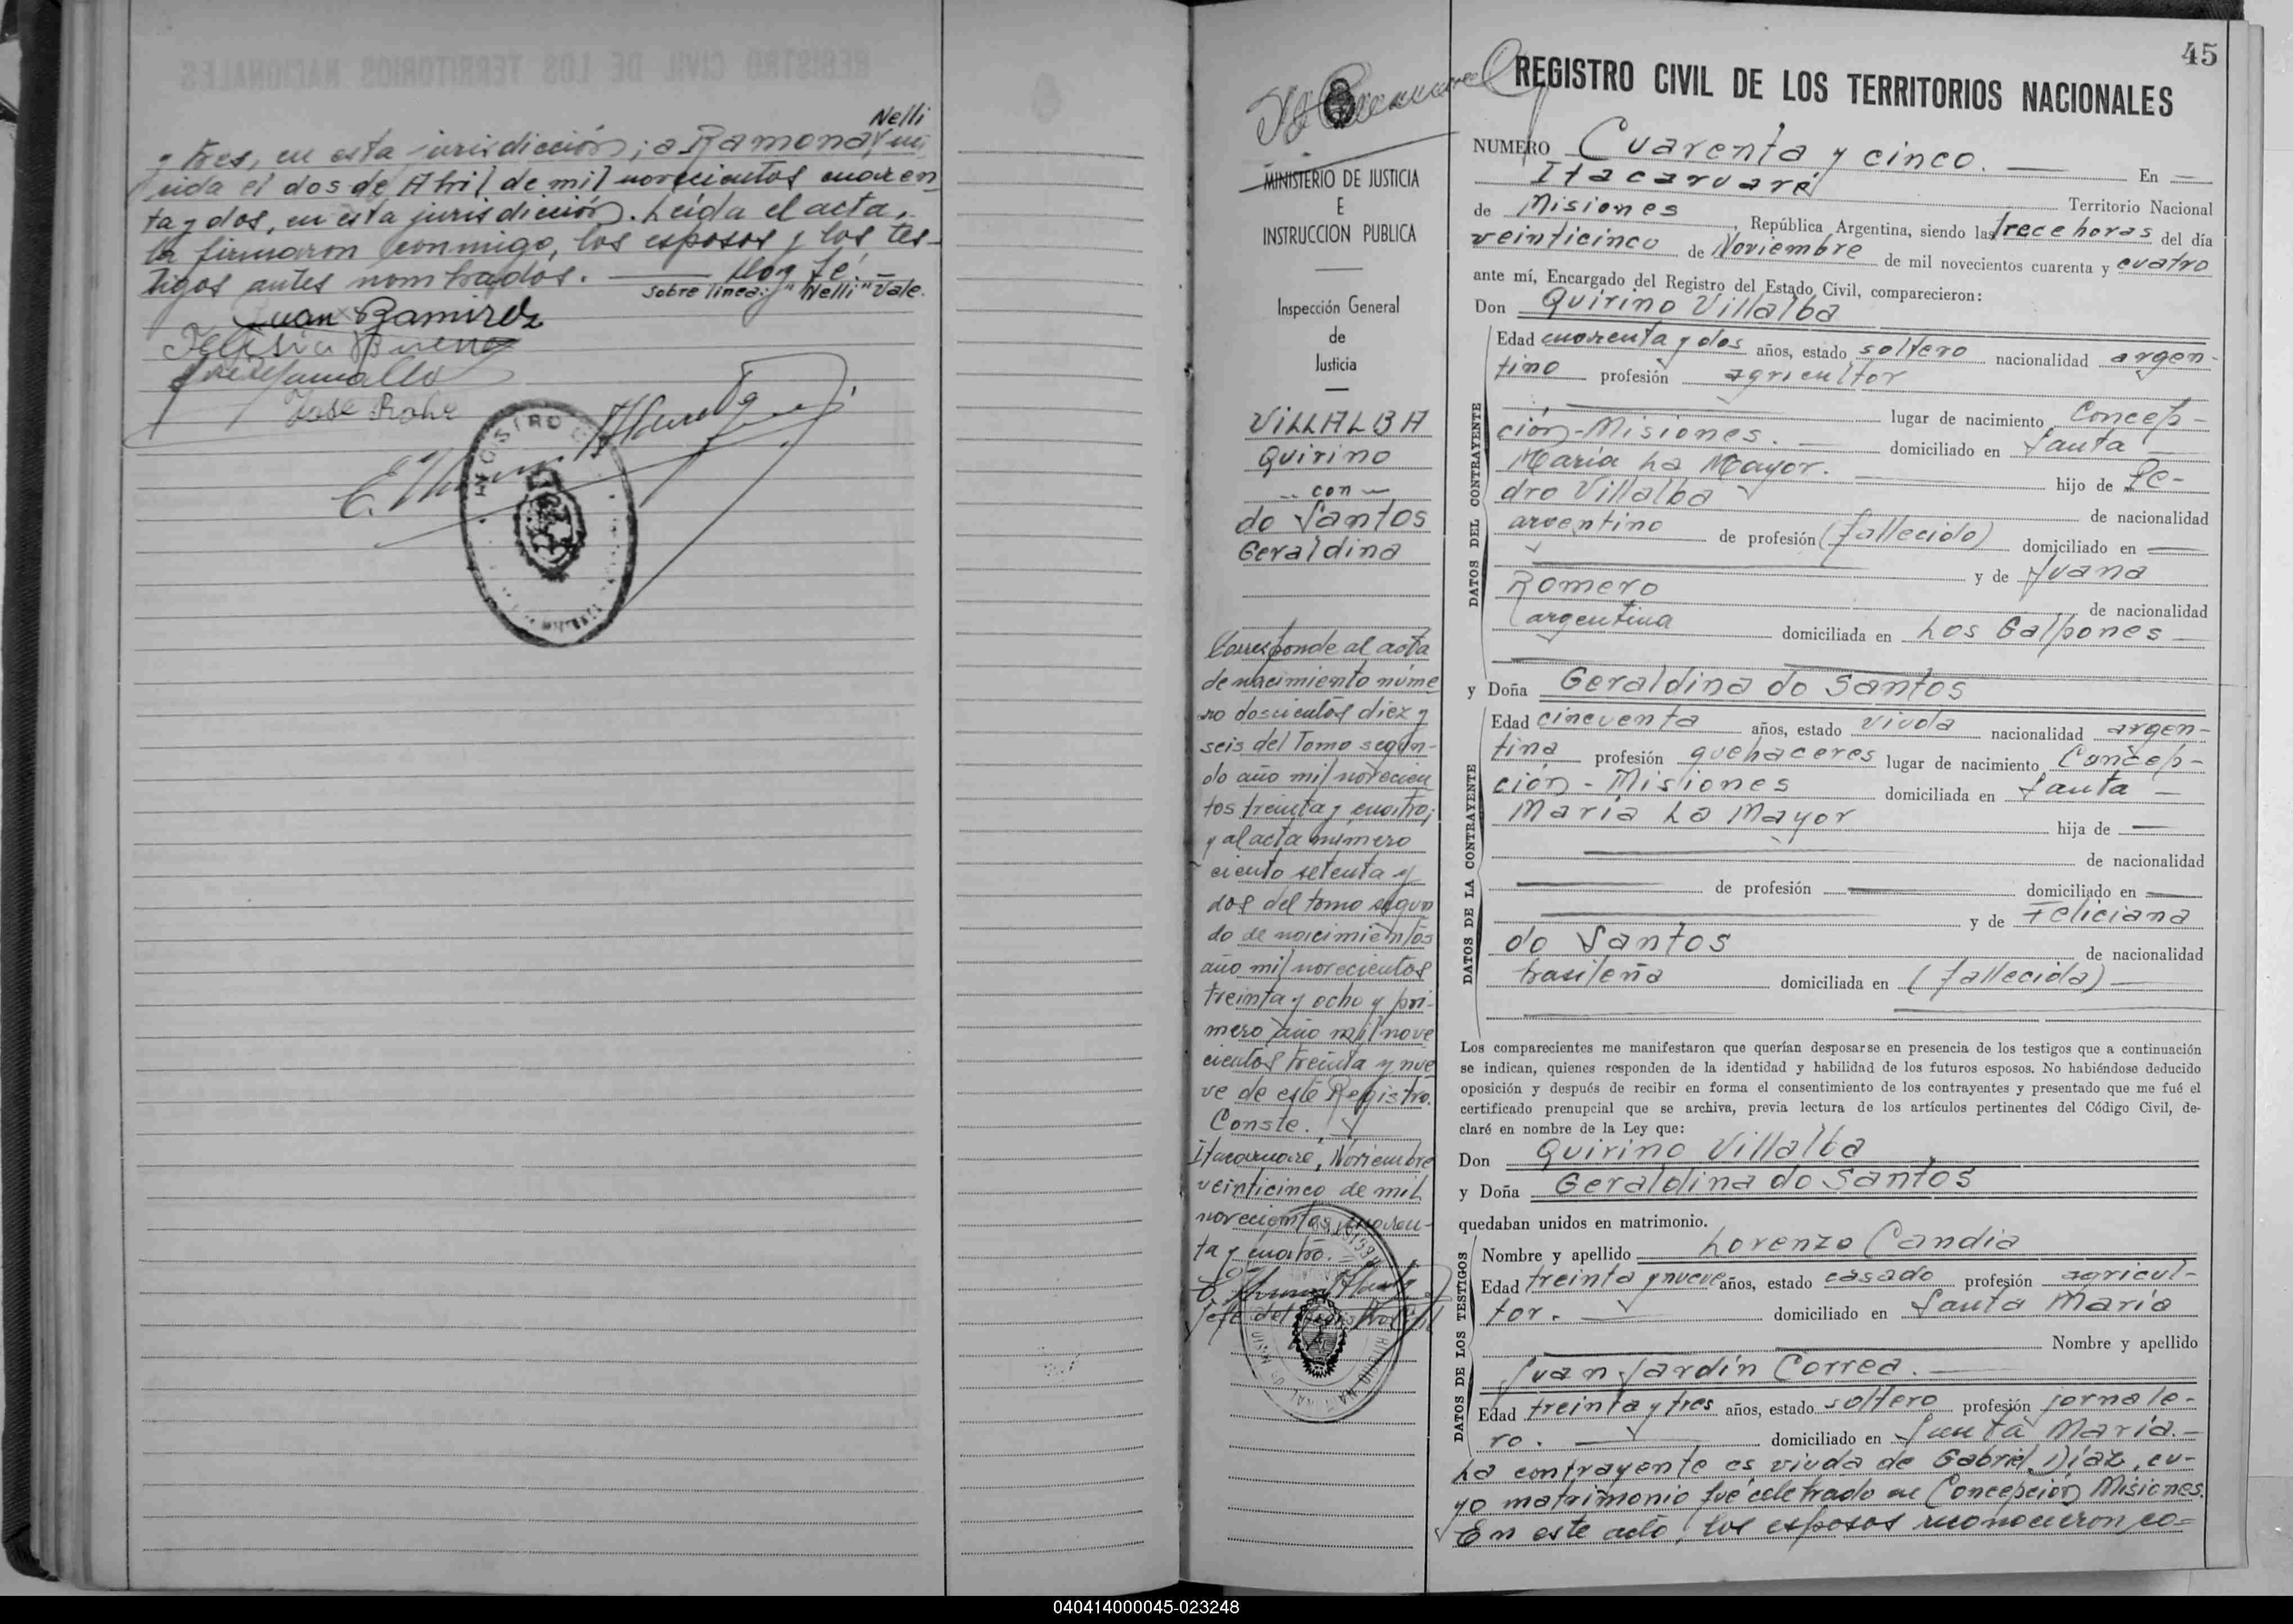 Nelli
y tres, en esta jurisdicción; a Ramona
cida el dos de Abril de mil novecientos cuaren
ta y dos, en esta jurisdicción. Leída el acta,
la firmaron conmigo, los esposos y los tes-
tigos antes nombrados. Doy fé.
Sobre linea: "Nelli" Vale.
Juan Ramirez
José Rohe
45
REGISTRO CIVIL DE LOS TERRITORIOS NACIONALES
MINISTERIO DE JUSTICIA
E
INSTRUCCION PUBLICA
Inspección General
de
Justicia
VILLALBA
Quirino
-- con --
do Santos
Geraldina
Corresponde al acta
de nacimiento núme
ro doscientos diez y
seis del Tomo segun-
do año mil novecien
tos treinta y cuatro;
y al acta número
ciento setenta y
dos del tomo segun
do de nacimientos
año mil novecientos
treinta y ocho y pri-
mero año mil nove
cientos treinta y nue
ve de este Registro.
Conste.
Itacaruaré, Noviembre
veinticinco de mil
novecientos cuaren-
ta y cuatro.
Jefe del
NUMERO Cuarenta y cinco. En
Itacaruaré Territorio Nacional
de Misiones, República Argentina, siendo las trece horas del día
veinticinco de Noviembre de mil novecientos cuarenta y cuatro
ante mí, Encargado del Registro del Estado Civil, comparecieron:
Don Quirino Villalba
DATOS DEL CONTRAYENTE
Edad cuarenta y dos años, estado soltero nacionalidad argen-
tino profesión agricultor
lugar de nacimiento Concep-
ción-Misiones. domiciliado en Santa
María La Mayor. hijo de Pe-
dro Villalba de nacionalidad
argentino de profesión (fallecido) domiciliado en
y de Juana
Romero de nacionalidad
argentina domiciliada en Los Galpones
y Doña Geraldina do Santos
DATOS DE LA CONTRAYENTE
Edad cincuenta años, estado viuda nacionalidad argen-
tina profesión quehaceres lugar de nacimiento Concep-
ción - Misiones domiciliada en Santa
María La Mayor hija de
de nacionalidad
de profesión domiciliado en
y de Feliciana
do Santos de nacionalidad
brasileña domiciliada en (fallecida)
Los comparecientes me manifestaron que querían desposarse en presencia de los testigos que a continuación
se indican, quienes responden de la identidad y habilidad de los futuros esposos. No habiéndose deducido
oposición y después de recibir en forma el consentimiento de los contrayentes y presentado que me fué el
certificado prenupcial que se archiva, previa lectura de los artículos pertinentes del Código Civil, de-
claré en nombre de la Ley que:
Don Quirino Villalba
y Doña Geraldina do Santos
quedaban unidos en matrimonio.
DATOS DE LOS TESTIGOS
Nombre y apellido Lorenzo Candia
Edad treinta y nueve años, estado casado profesión agricul-
tor. domiciliado en Santa María
Nombre y apellido
Juan Jardin Correa.
Edad treinta y tres años, estado soltero profesión jornale-
ro. domiciliado en Santa María.
La contrayente es viuda de Gabriel Díaz, cu-
yo matrimonio fué celebrado en Concepción Misiones.
En este acto, los esposos reconocieron co-
040414000045-023248